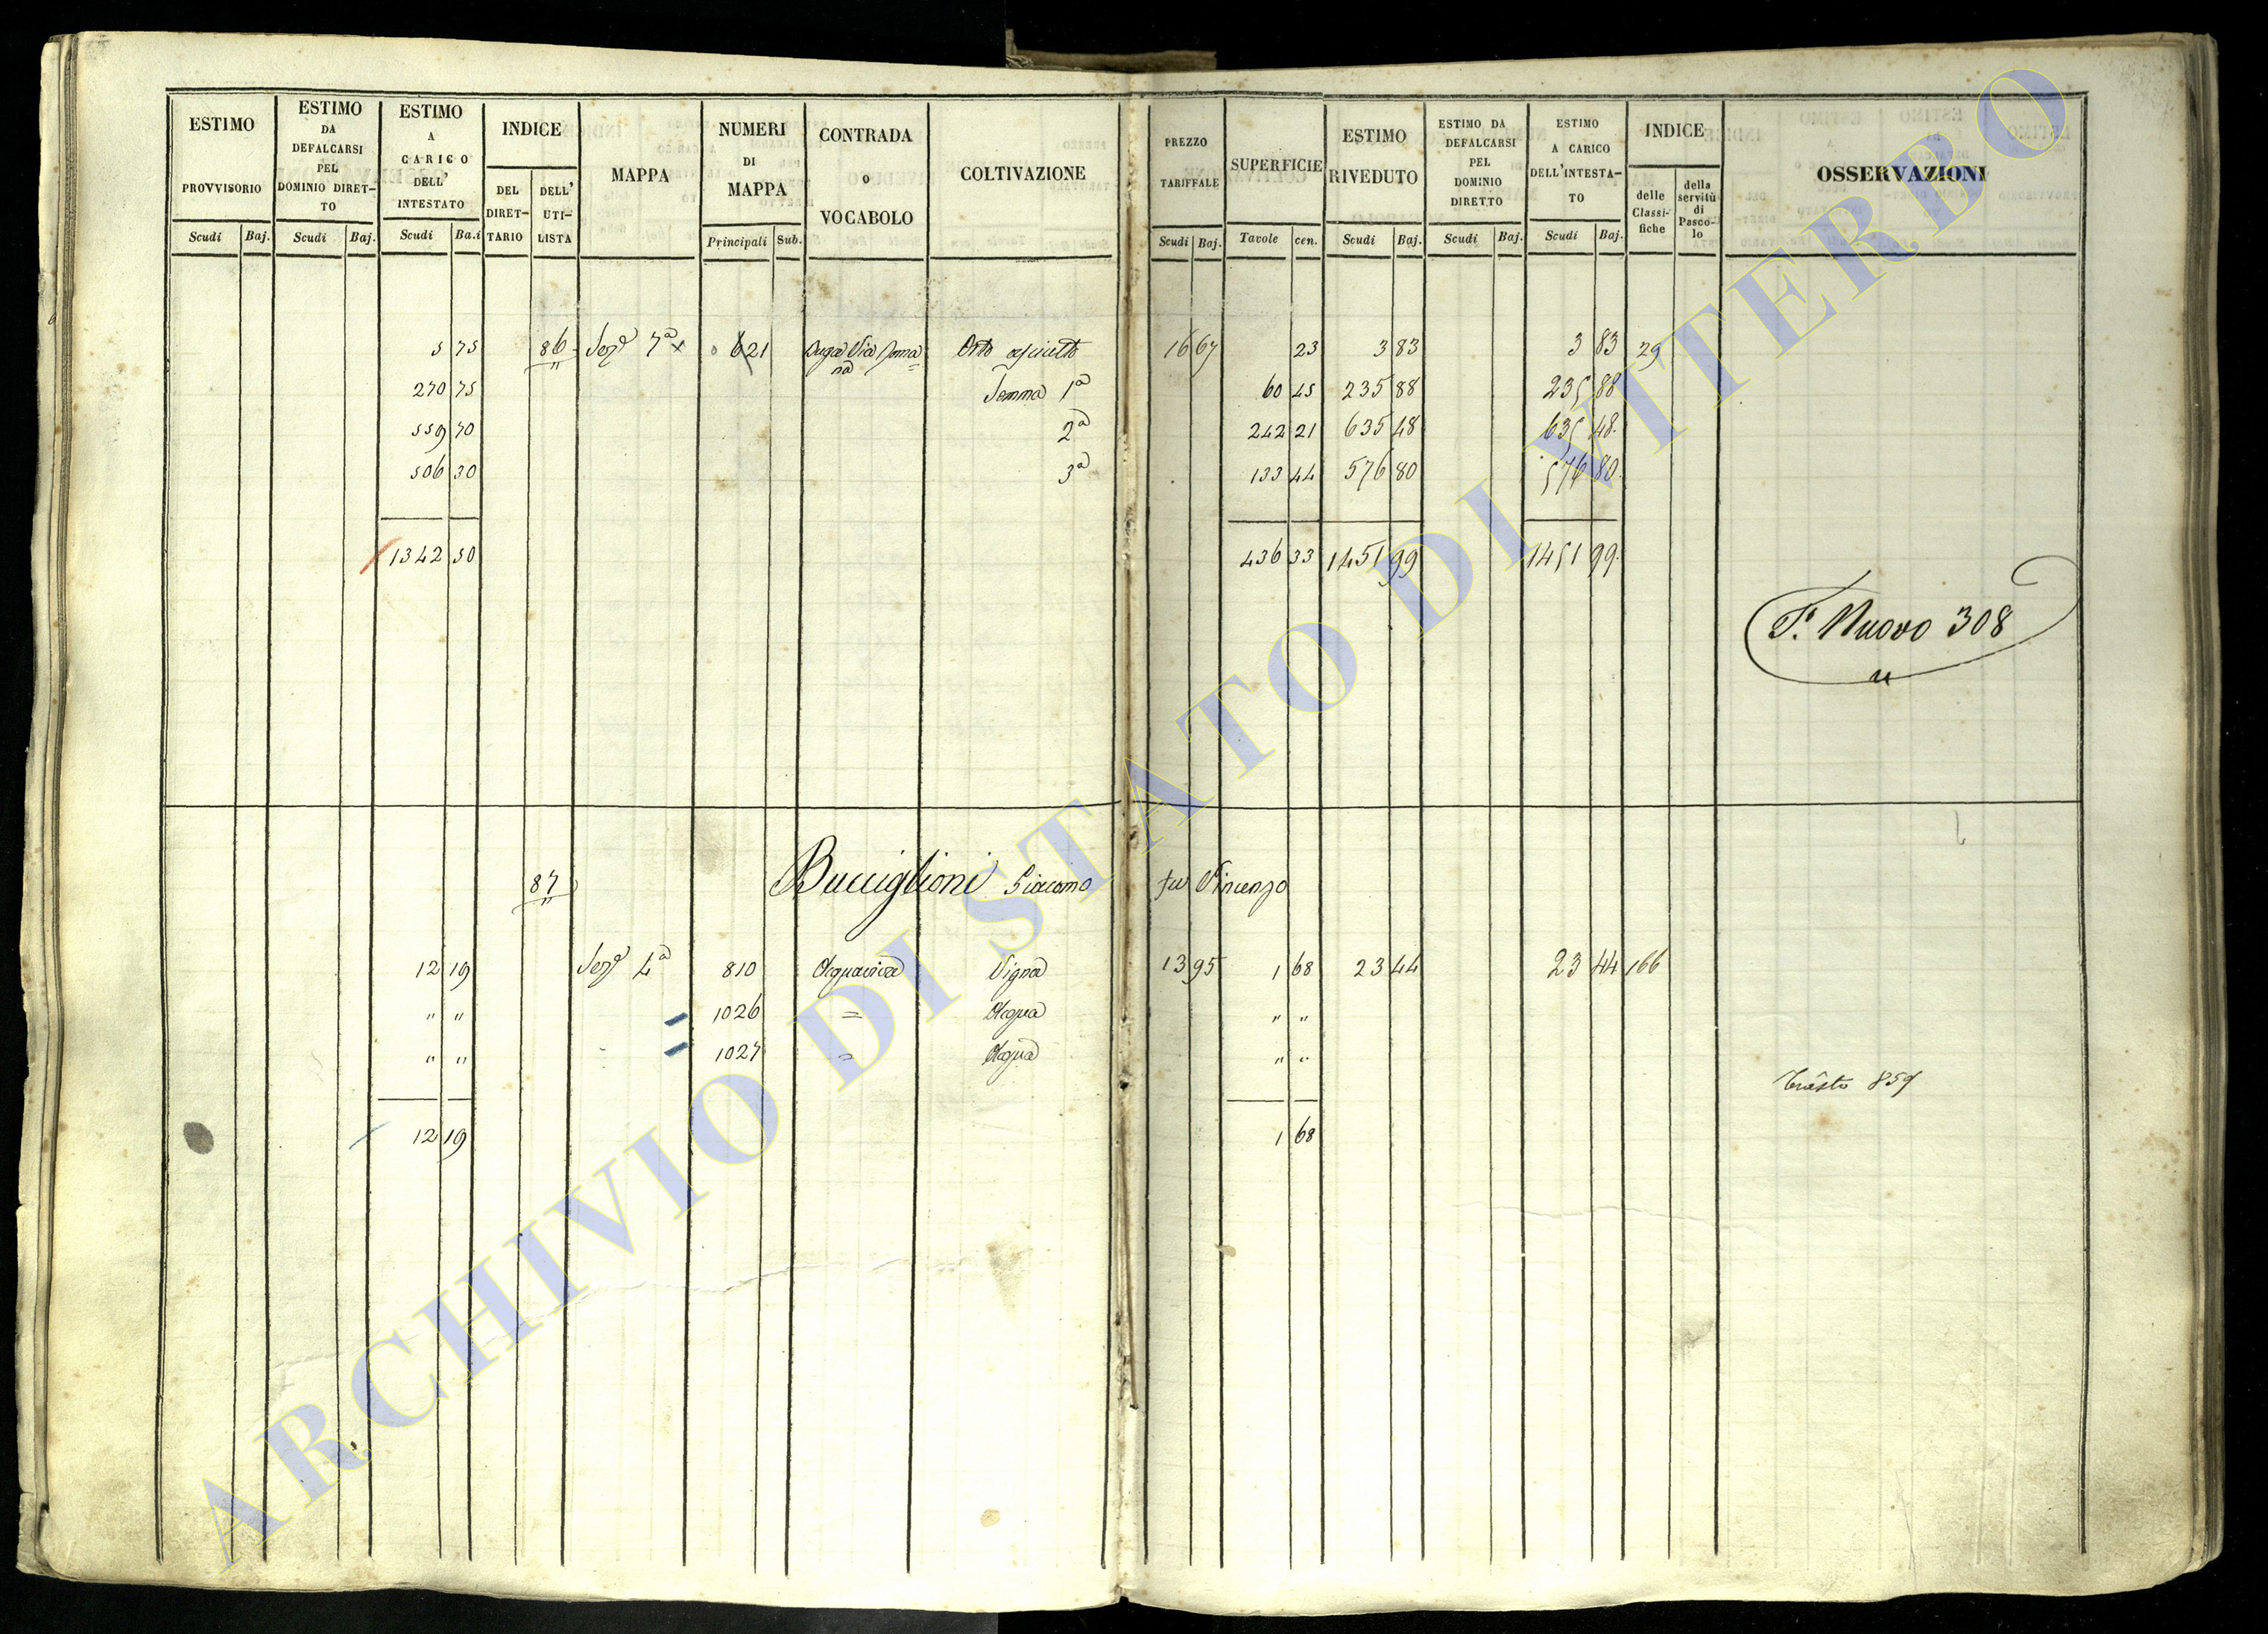 ESTIMO PROVVISORIO
ESTIMO DA DEFALCARSI PEL DOMINIO DIRET-TO
ESTIMO A CARICO DELL' INTESTATO
INDICE
DEL DIRET-TARIO
DELL' UTI-LISTA
MAPPA
NUMERI DI MAPPA
CONTRADA o VOCABOLO
COLTIVAZIONE
PREZZO TARIFFALE
SUPERFICIE
ESTIMO RIVEDUTO
ESTIMO DA DEFALCARSI PEL DOMINIO DIRETTO
ESTIMO A CARICO DELL'INTESTA-TO
INDICE
delle Classi-fiche
della servitù di Pasco-lo
OSSERVAZIONI
Scudi Baj. Scudi Baj. Scudi Ba.i Principali Sub. Scudi Baj. Tavole cen. Scudi Baj. Scudi Baj. Scudi Baj.
5 75 86 Sez.e 7a 621 Orto asciutto 16 67 23 3 83 3 83 29
270 75 Somma 1a 60 45 235 88 235 88
559 70 2a 242 21 635 48 635 48.
506 30 3a 133 44 576 80 576 80.
1342 50 436 33 1451 99 1451 99.
F. Nuovo 308
87 Bucciglioni Giacomo fu Vincenzo
12 19 Sez.e 4a 810 Acquaviva Vigna 13 95 1 68 23 44 23 44 166
" " 1026 = Acqua " "
" " 1027 = Acqua " "
859
12 19 1 68
ARCHIVIO DI STATO DI VITERBO